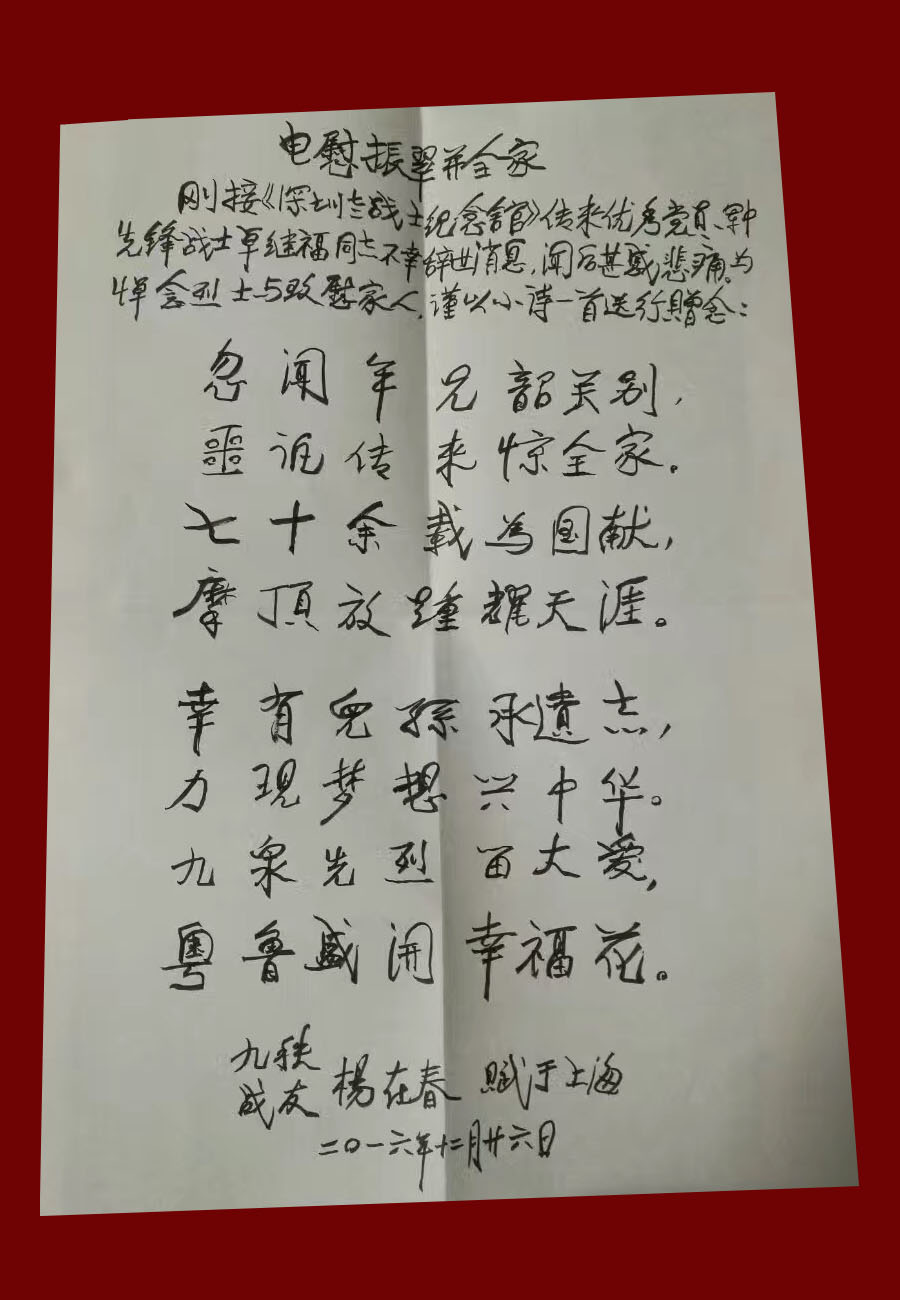 电慰振翠并全家
刚接《深圳老战士纪念馆》传来优秀党员、
先锋战士单继福同志不幸辞世消息，闻后甚感悲痛。为
悼念烈士与致慰家人，谨以小诗一首送行赠念：
忽闻年兄韶关别，
噩讯传来惊全家。
七十余载为国献，
摩顶放踵耀天涯。
幸有儿孙承遗志，
力现梦想兴中华。
九泉先烈留大爱，
粤鲁盛开幸福花。
九秩
战友 杨在春 赋于上海
二〇一六年十二月廿六日